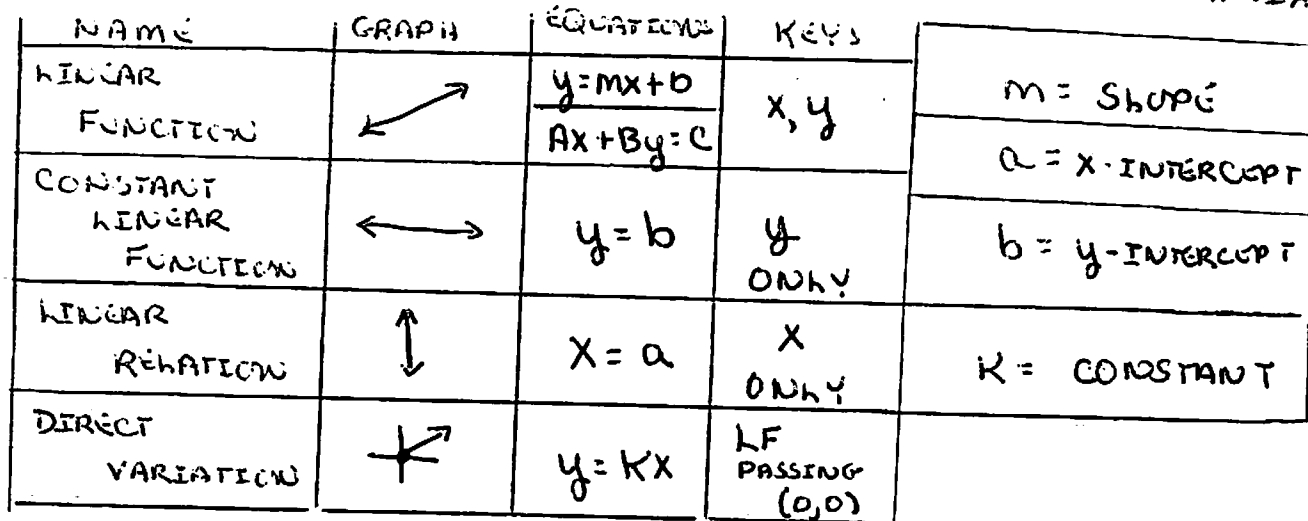 NAME GRAPH EQUATIONS KEYS
LINEAR
FUNCTION
y=mx+b
Ax+By=C
x, y
CONSTANT
LINEAR
FUNCTION
y=b
y
ONLY
LINEAR
RELATION
X=a
X
ONLY
DIRECT
VARIATION
y=Kx
LF
PASSING
(0,0)
m = SLOPE
a = X-INTERCEPT
b = y-INTERCEPT
K = CONSTANT